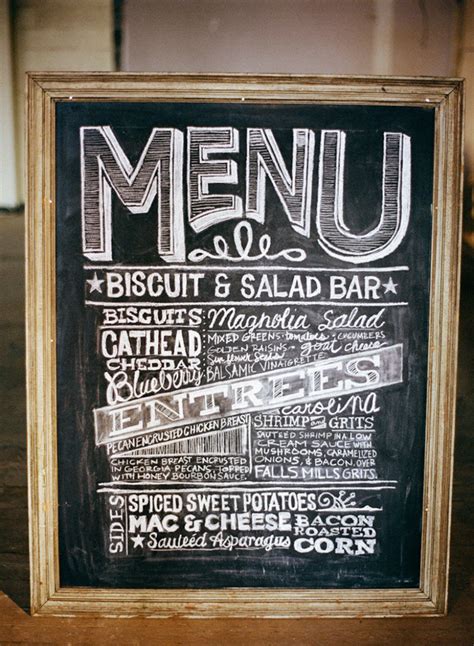 MENU
BISCUIT & SALAD BAR
BISCUITS
CATHEAD
CHEDDAR
Blueberry
Magnolia Salad
MIXED GREENS • tomatoes • CUCUMBERS
GOLDEN RAISINS • goat cheese
Sunflower Seeds
BALSAMIC VINAIGRETTE
ENTREES
PECAN ENCRUSTED CHICKEN BREAST
CHICKEN BREAST ENCRUSTED
IN GEORGIA PECANS, TOPPED
WITH HONEY BOURBON SAUCE.
Carolina
SHRIMP and GRITS
SAUTEED SHRIMP IN A LOW
CREAM SAUCE WITH
MUSHROOMS, CARAMELIZED
ONIONS, & BACON, OVER
FALLS MILLS GRITS.
SIDES
SPICED SWEET POTATOES
MAC & CHEESE
Sautéed Asparagus
BACON
ROASTED
CORN